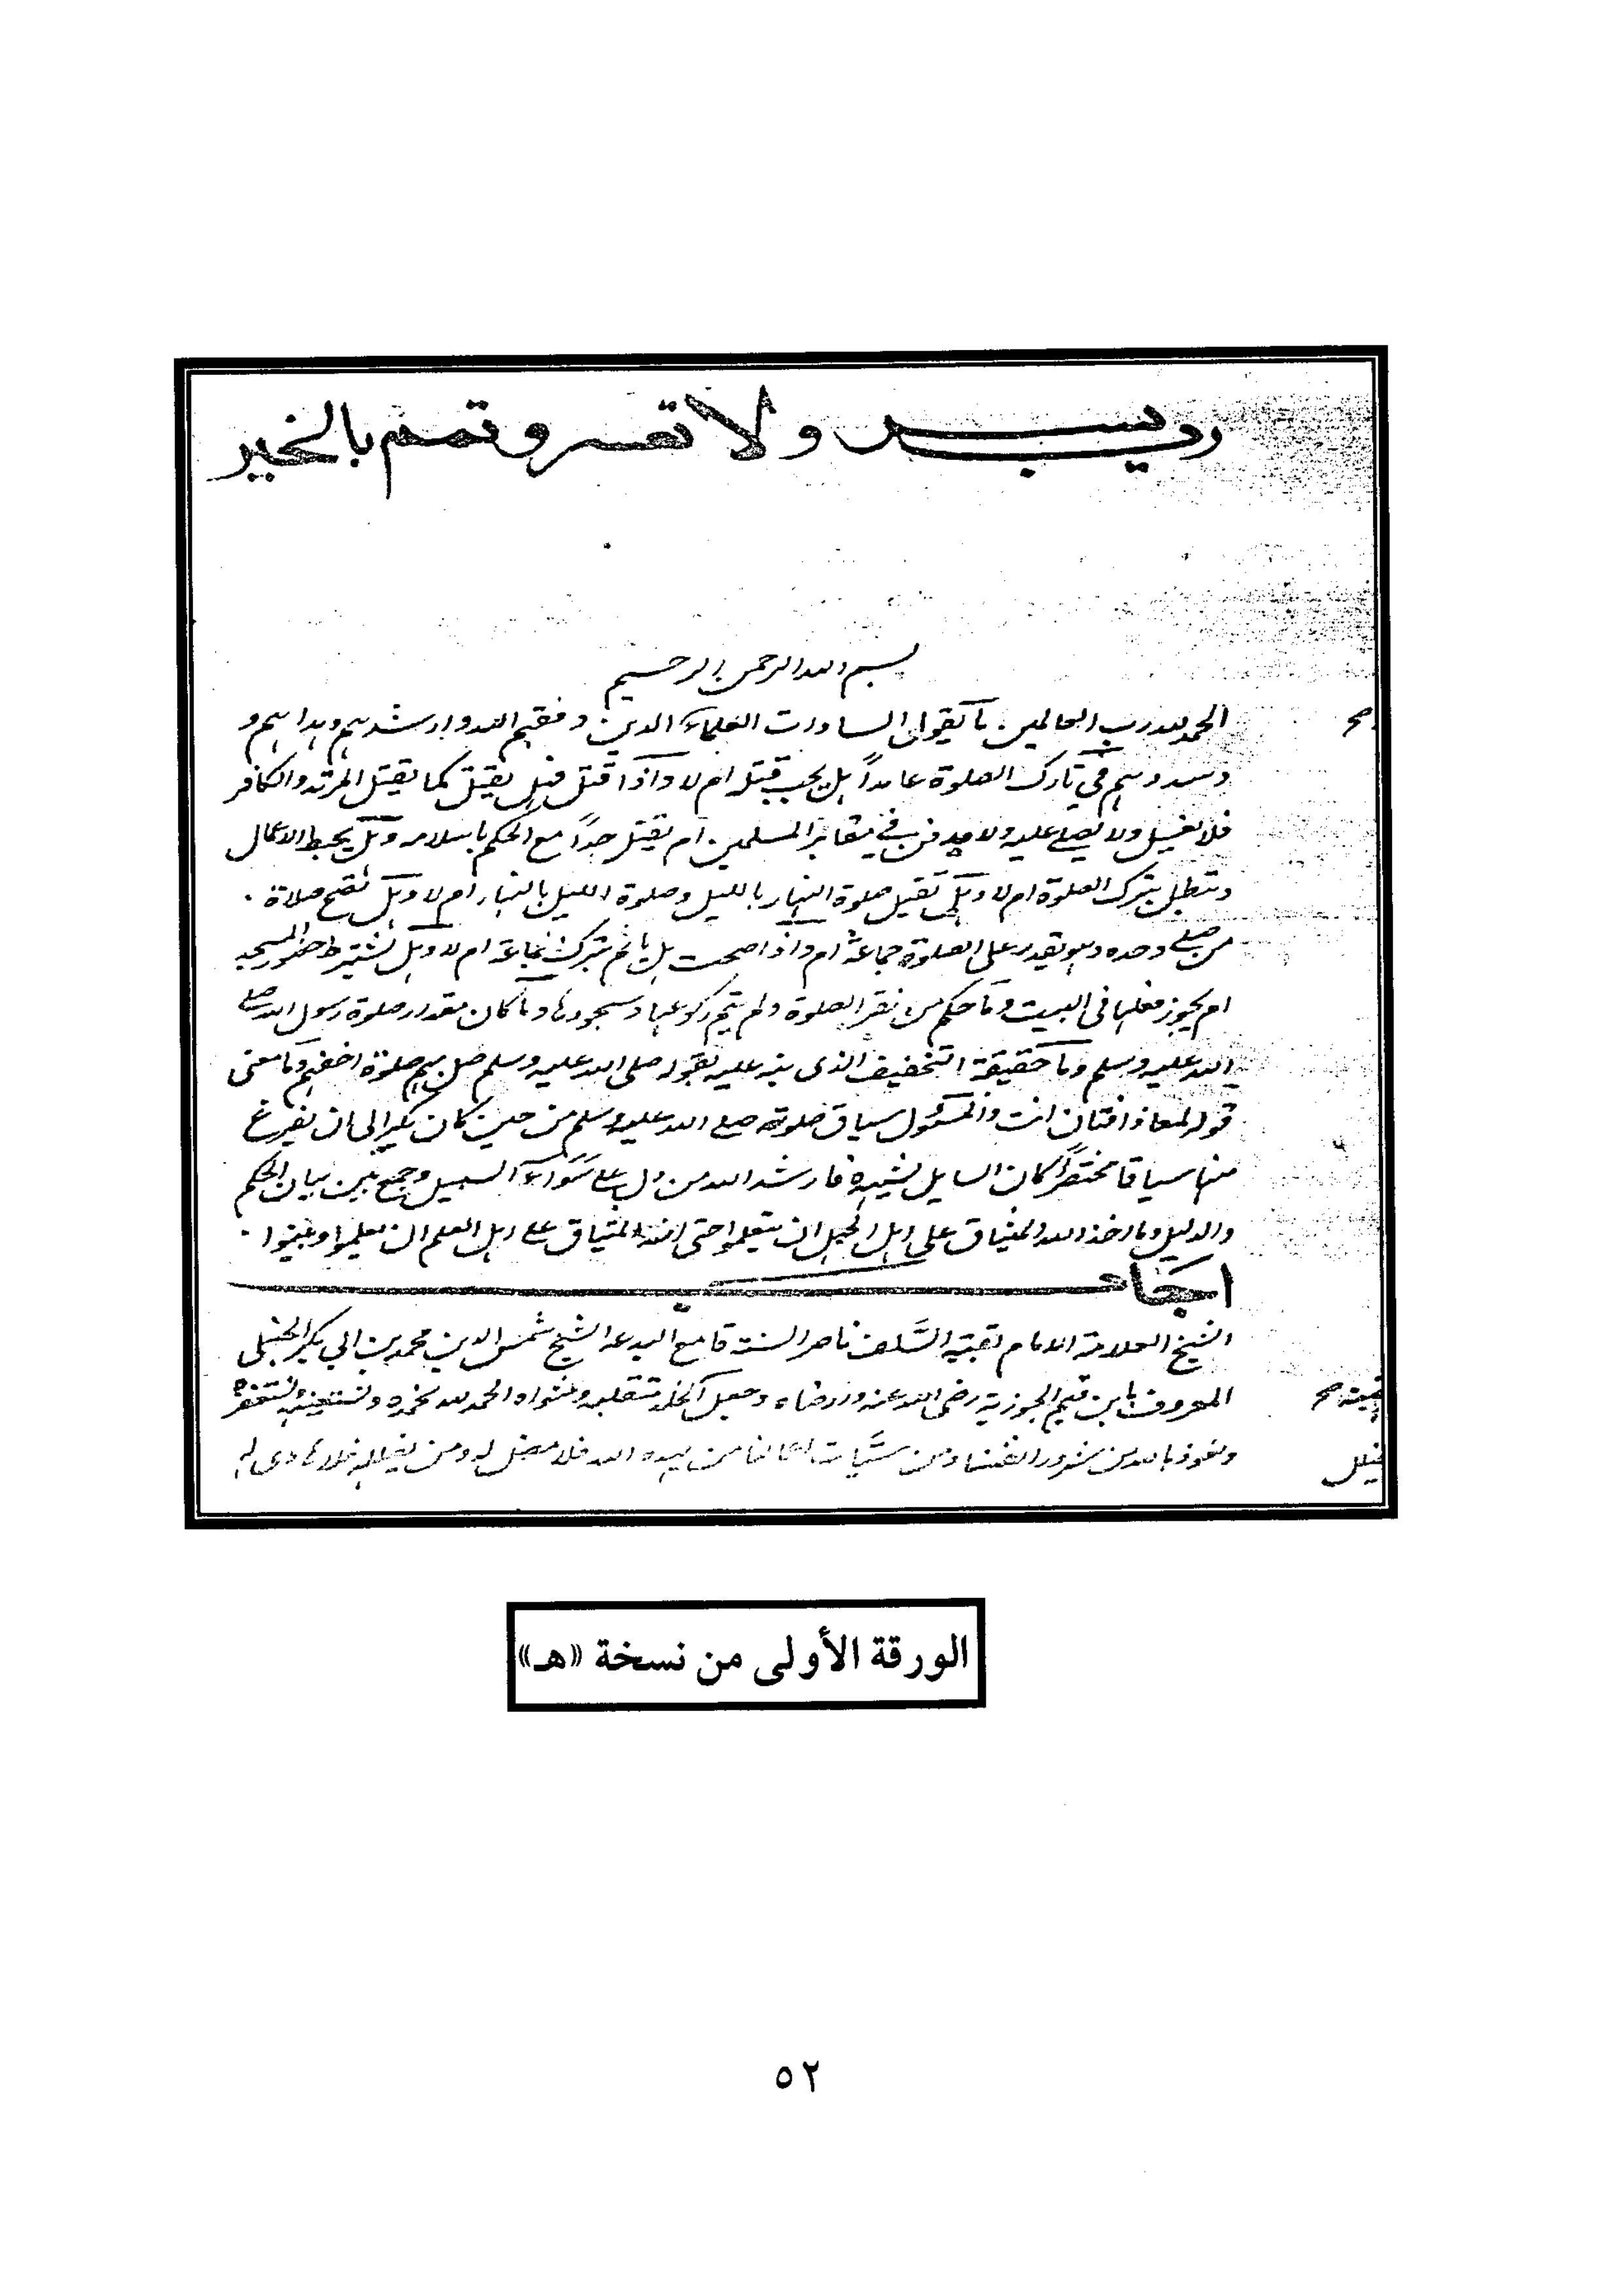 رب يسر ولا تعسر وتمم بالخير
بسم الله الرحمن الرحيم
الحمد لله رب العالمين ما يقول السادات العلماء الدين وفقهم الله وارشدهم وهداهم و
وسددهم في تارك الصلوة عامداً هل يجب قتله ام لا واذا قتل فهل يقتل كما يقتل المرتد والكافر
فلا يغسل ولا يصلى عليه ولا يدفن في مقابر المسلمين ام يقتل حداً مع الحكم باسلامه وهل يحبط الاعمال
وتبطل بترك الصلوة ام لا وهل تقبل صلوة النهار بالليل وصلوة الليل بالنهار ام لا وهل تصح صلاة
من صلى وحده وهو يقدر على الصلوة جماعة ام واذا صحت هل ياثم بترك الجماعة ام لا وهل يشترط حضور المسجد
ام يجوز فعلها في البيت وما حكم من نقر الصلوة ولم يتم ركوعها وسجودها وما كان مقدار صلوة رسول الله صلى
الله عليه وسلم وما حقيقة التخفيف الذى نبه عليه بقوله صلى الله عليه وسلم صل بهم صلوة اخفهم وما معنى
قوله لمعاذ افتان انت والمسئول سياق صلوته صلى الله عليه وسلم من حين كان يكبر الى ان يفرغ
منها سياقا مختصراً كان السايل يشهده فارشد الله من دل على سواء السبيل وجمع بين بيان الحكم
والدليل وما اخذ الله الميثاق على اهل الجهل ان يتعلموا حتى اخذ الميثاق على اهل العلم ان يعلموا ويبينوا
اجاب
الشيخ العلامة الامام بقية السلف ناصر السنة قامع البدعة الشيخ شمس الدين محمد بن ابي بكر الحنبلى
المعروف بابن قيم الجوزية رضى الله عنه وارضاه وجعل الجنة متقلبه ومثواه الحمد لله نحمده ونستعينه ونستغفره
ونعوذ بالله من شرور انفسنا ومن سيّات اعمالنا من يهده الله فلا مضل له ومن يضلل فلا هادى له
الورقة الأولى من نسخة «هـ»
٥٢